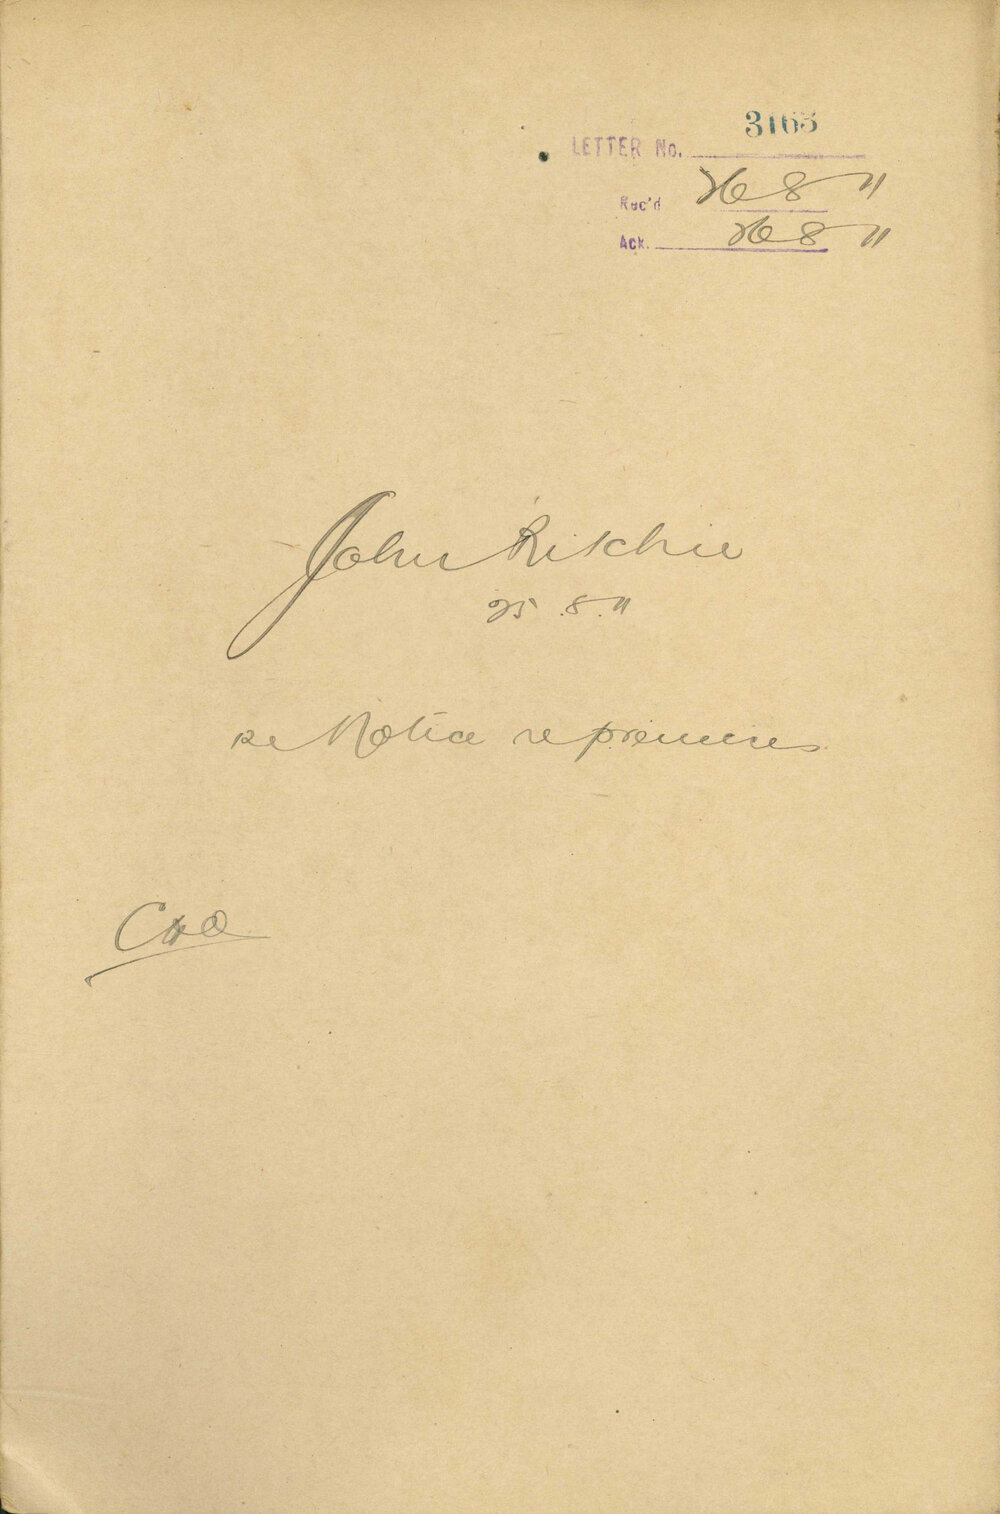 3163
LETTER No.
Rec'd 26 8 11
Ack. 26 8 11
John Ritchie
25.8.11
re Notice re premises